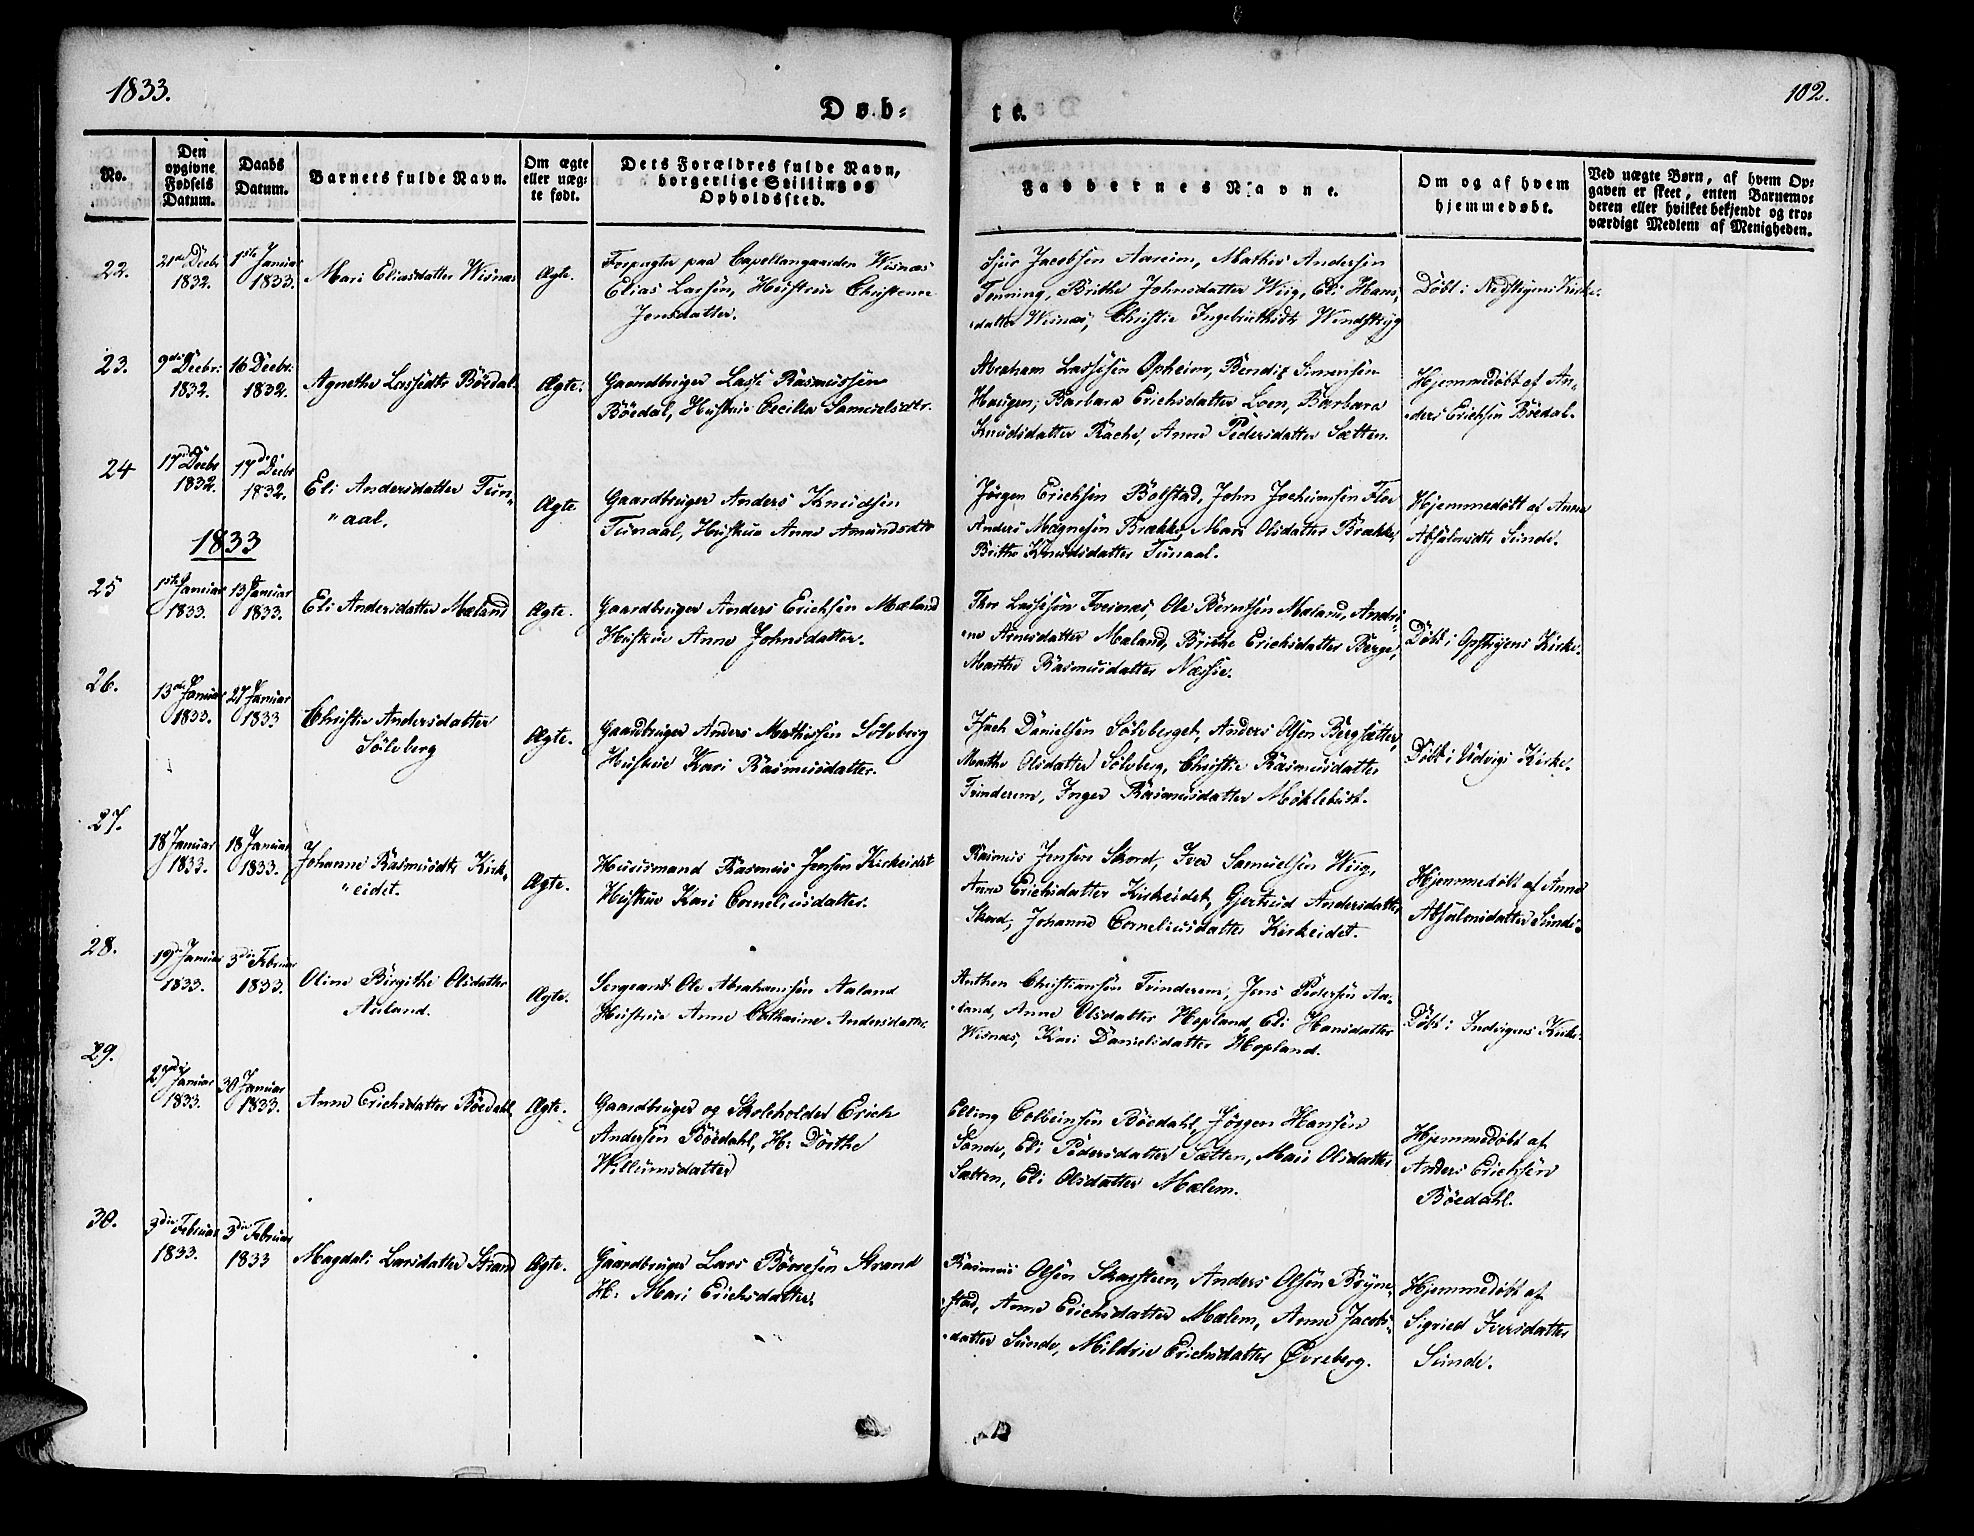 1833.
102.
Døb-
te.
No.
Den opgivne Fødsels Datum.
Daabs Datum.
Barnets fulde Navn.
Om ægte eller uægte født.
Dets Forældres fulde Navn, borgerlige Stilling og Opholdssted.
Faddernes Navne.
Om og af hvem hjemmedøbt.
Ved uægte Børn, af hvem Opgaven er skeet, enten Barnemoderen eller hvilket bekjendt og troværdigt Medlem af Menigheden.
22.
21de Decbr 1832.
1ste Januar 1833.
Mari Eliasdatter Wisnæs
Ægte.
Forpagter paa Capellangaarden Wisnæs
Elias Larsen, Hustrue Christenne
Jonsdatter.
Sjur Jacobsen Aareim, Mathis Andersen
Tenning, Brithe Johnsdatter Wiig, Eli Hans-
datter Wisnæs, Christie Ingebrithsdtr Windstryg
Døbt i Nedstryens Kirke.
23.
9de Decbr: 1832.
16 Decbr: 1832.
Agnethe Lassedtr Böedal.
Ægte.
Gaardbruger Lasse Rasmussen
Böedal, Hustrue Cecilia Samuelsdtr.
Abraham Lassesen Opheim, Bendix Simensen
Haugen, Barbara Erichsdatter Loen, Barbara
Knudsdatter Rache, Anne Pedersdatter Sætten.
Hjemmedøbt af An-
ders Erichsen Böedal.
24
17de Decbr 1832.
17de Decbr 1832.
Eli Andersdatter Tun-
"aal.
Ægte
Gaardbruger Anders Knudsen
Tunaal, Hustrue Anne Amundsdtr
Jörgen Erichsen Bolstad, John Jocheimsen Flor
Anders Magnesen Brække, Mari Olsdatter Brække,
Brithe Knudsdatter Tunaal.
Hjemmedøbt af Anne
Absalonsdtr Sunde.
1833
25
1ste Januar 1833.
13 Januar 1833.
Eli Andersdatter Mæland
Ægte.
Gaardbruger Anders Erichsen Mæland
Hustrue Anne Johnsdatter.
Thor Lassesen Fresnæs, Ole Berntsen Mæland, Andri-
ne Arnesdatter Mæland, Brithe Erichsdatter Berge,
Marthe Rasmusdatter Næsse.
Døbt i Opstryens Kirke.
26.
13de Januar 1833.
27 Januar 1833
Christie Andersdatter
Sölvberg
Ægte.
Gaardbruger Anders Mathissen Sölvberg
Hustrue Kari Rasmusdatter.
Isach Danielsen Sölvberget, Anders Olsen Bergsætter,
Marthe Olsdatter Sölvberg, Christie Rasmusdatter
Tvinderem, Inger Rasmusdatter Möklebust.
Døbt i Udvigs Kirke.
27.
18 Januar 1833.
18 Januar 1833.
Johanne Rasmusdtr Kirk-
"eidet.
Ægte.
Huusmand Rasmus Jensen Kirkeidet
Hustrue Kari Corneliusdatter.
Rasmus Jensen Skord, Iver Samuelsen Wiig,
Anne Erichsdatter Kirkeidet, Gjertrud Andersdatter
Skord, Johanne Corneliusdatter Kirkeidet.
Hjemmedøbt af Anne
Absalonsdatter Sunde
28.
19de Januar 1833.
3die Februar 1833.
Oline Birgithe Olsdatter
Aaland.
Ægte.
Sergeant Ole Abrahamsen Aaland
Hustrue Anne Cathrine Andersdatter
Anthon Christiansen Tvinderem, Jens Pedersen Aa-
land, Anne Olsdatter Hopland, Eli Hansdatter
Wisnæs, Kari Danielsdatter Hopland.
Døbt i Indvigens Kirke
29.
27de Januar 1833.
30 Januar 1833.
Anne Erichsdatter Böedahl
Ægte.
Gaardbruger og Skoleholder Erich
Andersen Böedahl, H: Dörthe
Willumsdatter
Elling Colbeinsen Böedahl, Jörgen Hansen
Sande, Eli Pedersdatter Sætten, Mari Olsdatter
Sætten, Eli Olsdatter Mælem.
Hjemmedøbt af
Anders Erichsen
Böedahl.
30.
3die Februar 1833.
3die Februar 1833
Magdali Larsdatter Strand
Ægte.
Gaardbruger Lars Börresen Strand
H: Mari Erichsdatter.
Rasmus Olsen Skarsteen, Anders Olsen Bryne-
stad, Anne Erichsdatter Mælem, Anne Jacobs-
datter Sunde, Mildrie Erichsdatter Øvreberg.
Hjemmedøbt af
Sigried Iversdatter
Sunde.